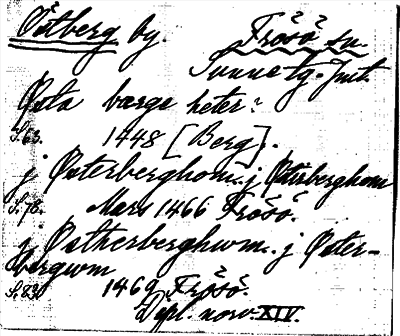 Östberg by. Frösö sn.
Sunne tg. Jmt.
Østa bærge heter:
S. 63. 1448 [Berg].
j Østerberghom. j Østerberghom
S. 78. Mars 1466 Frösö.
j Østherberghwm. j Øster-
bergwm
S. 83. 1469 Frösö.
Dipl. norv. XIV.